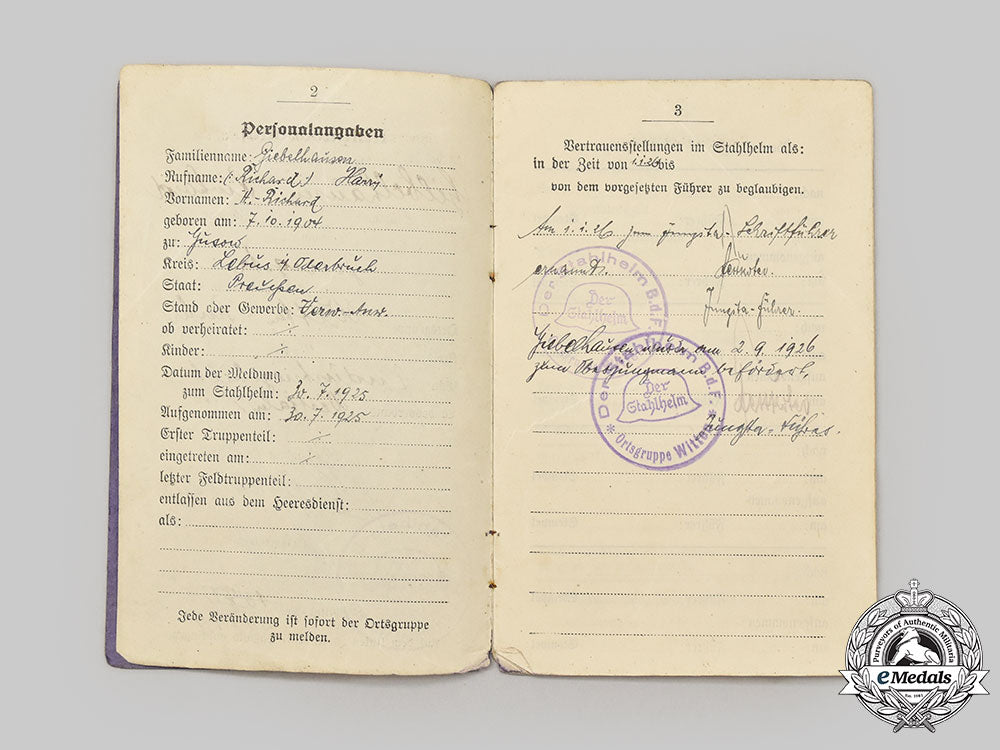 2
Personalangaben
Familienname: Giebelhausen
Rufname: (Richard) Harry
Vornamen: A.-Richard
geboren am: 7.10.1904
zu: Gusow
Kreis: Lebus i/ Oderbruch
Staat: Preußen
Stand oder Gewerbe: Verw.-Anw.
ob verheiratet: ./.
Kinder: ./.
Datum der Meldung
zum Stahlhelm: 30.7.1925
Aufgenommen am: 30.7.1925
Erster Truppenteil: ./.
eingetreten am: ./.
letzter Feldtruppenteil:
entlassen aus dem Heeresdienst:
als:
Jede Veränderung ist sofort der Ortsgruppe
zu melden.
3
Vertrauensstellungen im Stahlhelm als:
in der Zeit von 1.1.26 bis
von dem vorgesetzten Führer zu beglaubigen.
Am 1.1.26 zum Jungsta-Schriftführer
ernannt.
Jungsta-Führer.
Giebelhausen wurde am 2.9.1926
zum Oberjungmann befördert,
Jungsta-Führer.
Der Stahlhelm B.d.F.
Der
Stahlhelm
Der Stahlhelm B.d.F.
Der
Stahlhelm
* Ortsgruppe Witten *
Purveyors of Authentic Militaria
eMedals